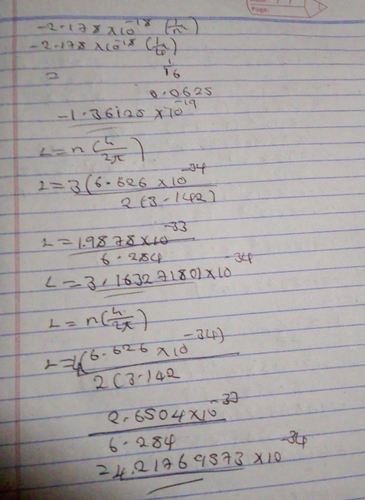 -2.178 x10^-18 (1/n)
-2.178 x10^-18 (1/4)
= 1/16
0.0625
-1.36125 x10^-19
L = n(h/2π)
L = 3(6.626 x10^-34) / 2(3.142)
L = 1.9878x10^-33 / 6.284
L = 3.163271801x10^-34
L = n(h/2π)
L = 4(6.626 x10^-34) / 2(3.142
2.6504x10^-33 / 6.284
= 4.21769573 x10^-34